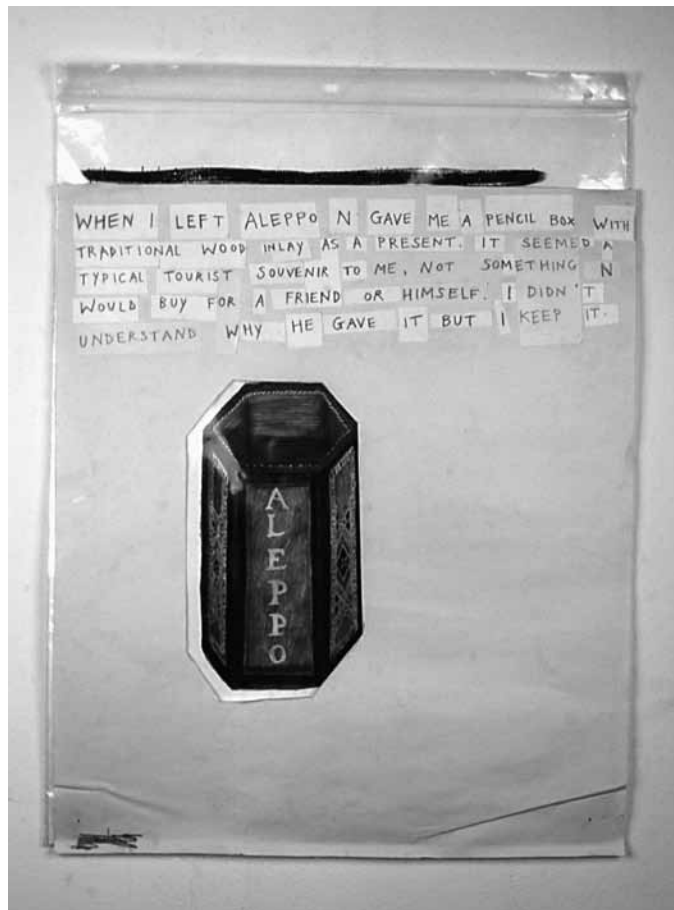 WHEN I LEFT ALEPPO N GAVE ME A PENCIL BOX WITH
TRADITIONAL WOOD INLAY AS A PRESENT. IT SEEMED A
TYPICAL TOURIST SOUVENIR TO ME, NOT SOMETHING N
WOULD BUY FOR A FRIEND OR HIMSELF. I DIDN'T
UNDERSTAND WHY HE GAVE IT BUT I KEEP IT.
ALEPPO